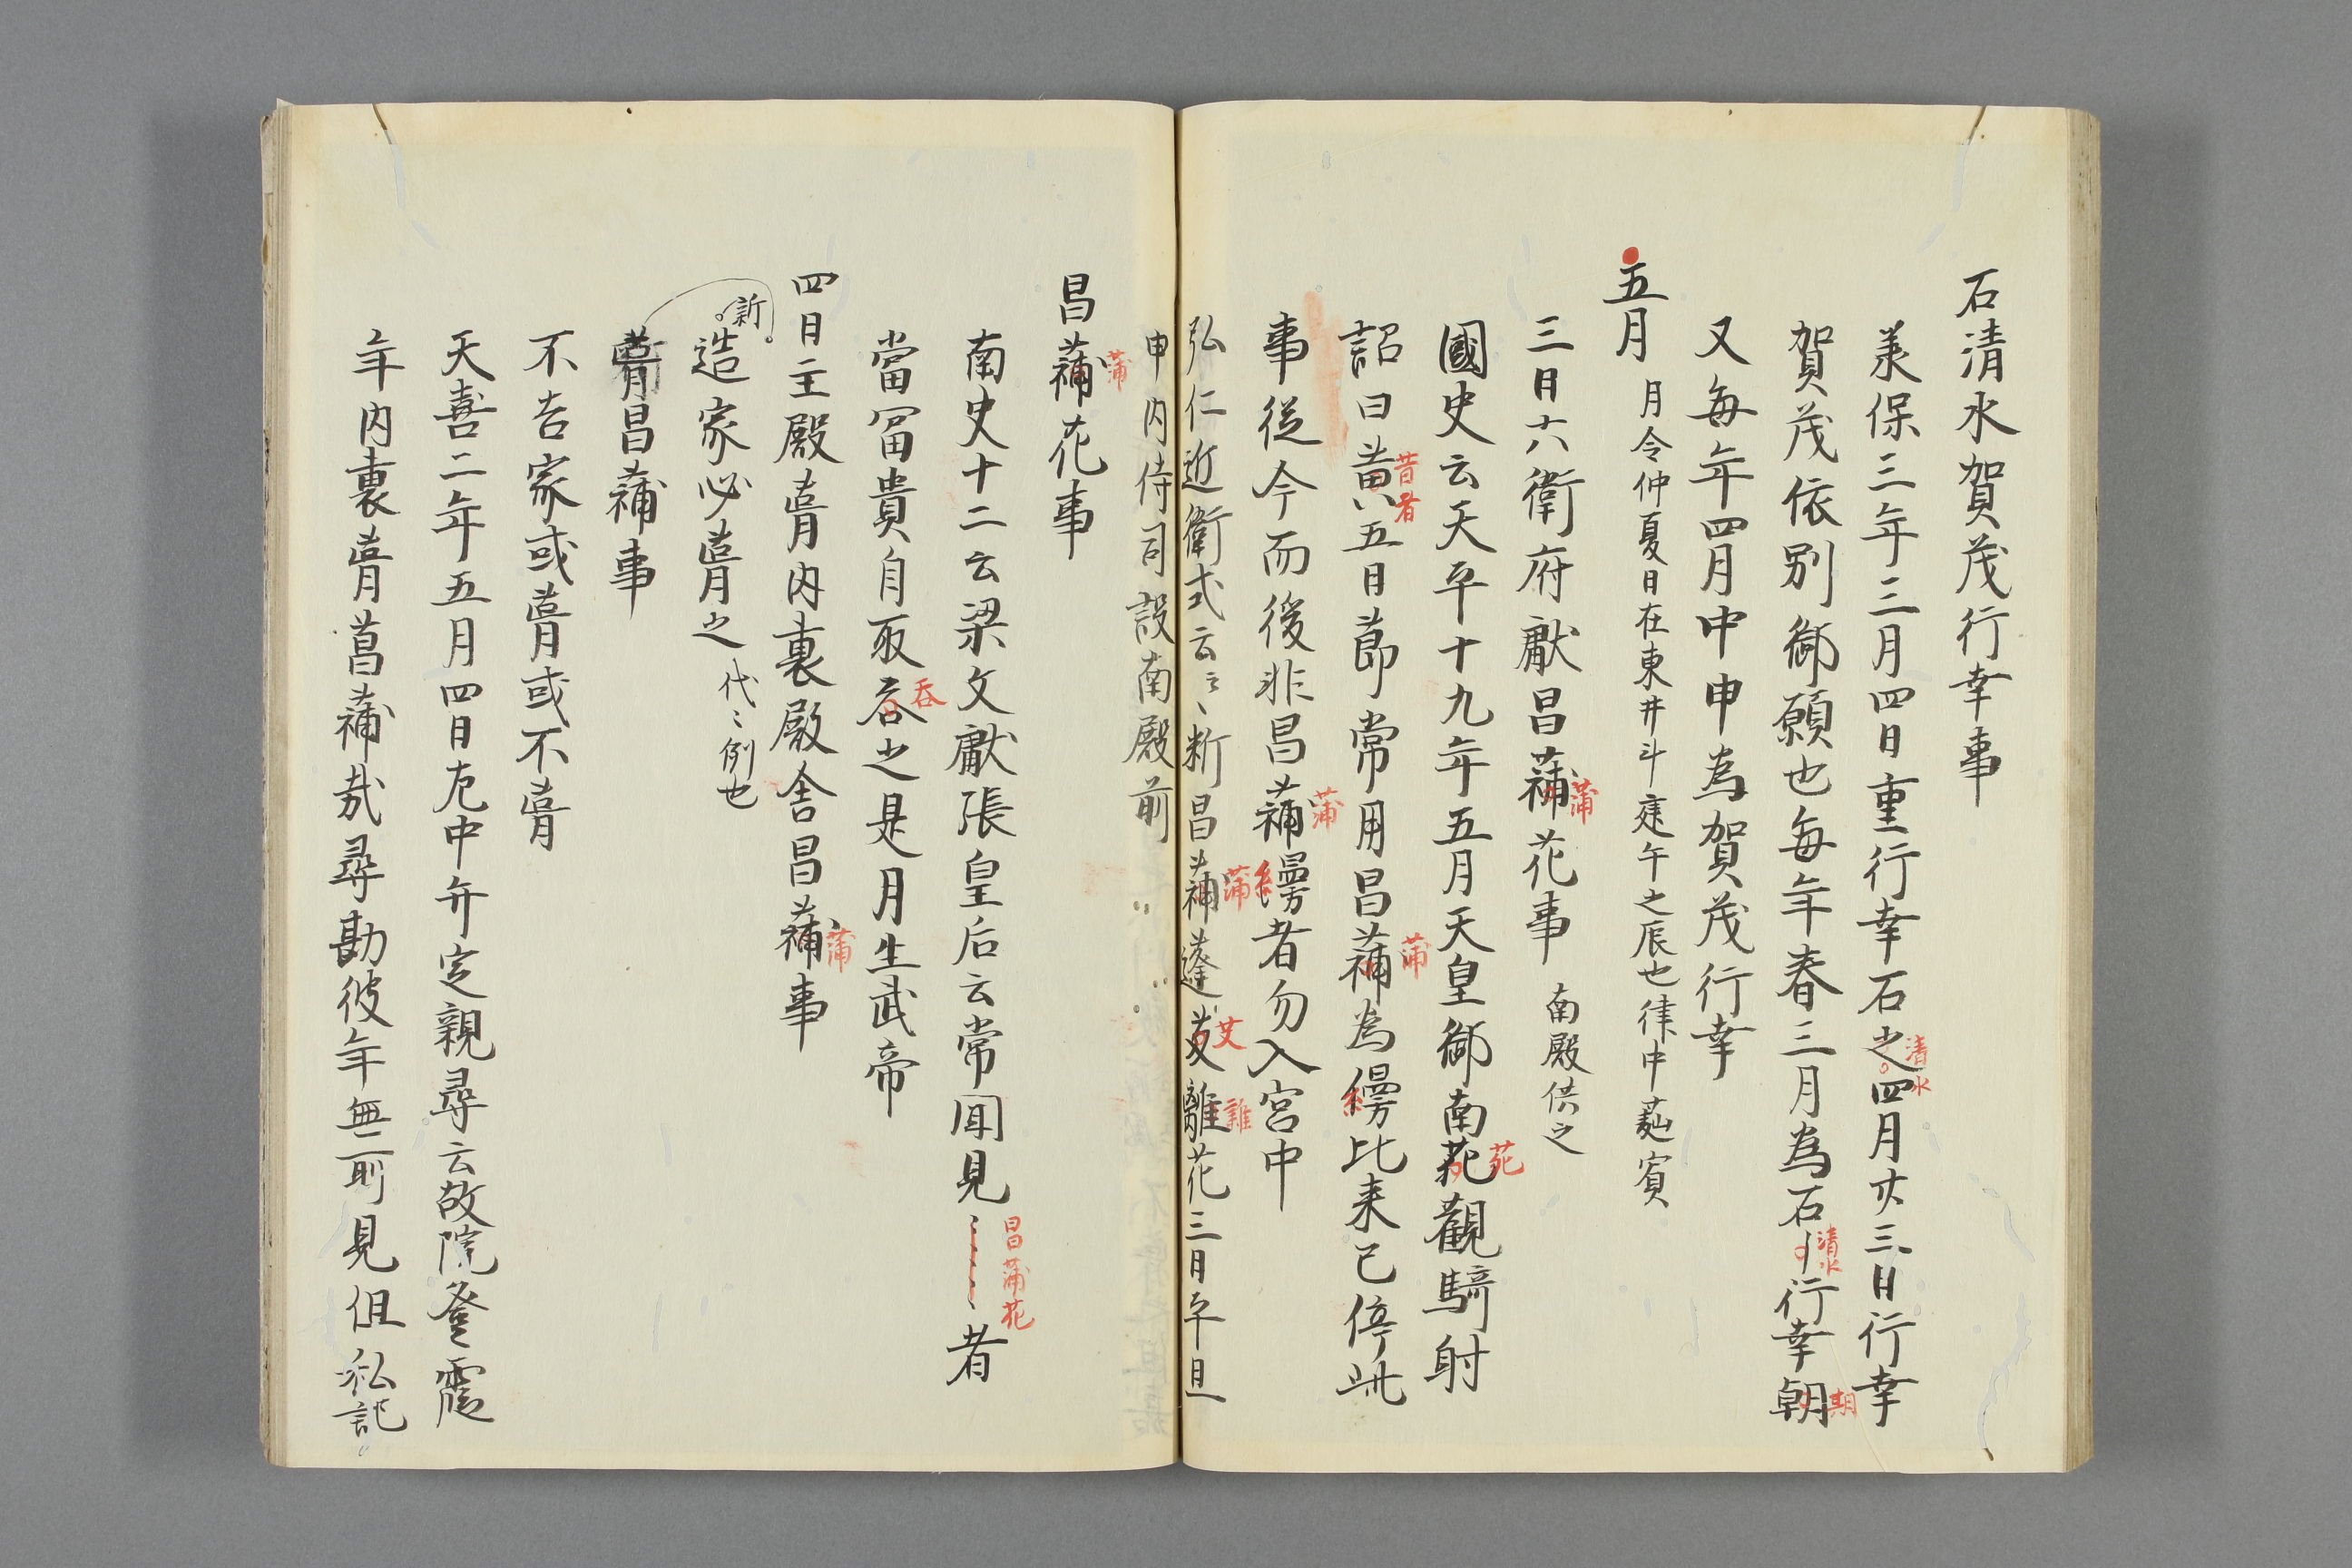 石清水賀茂行幸事
承保三年三月四日重行幸石之清水四月廿三日行幸
賀茂依別御願也每年春三月為石〡清水行幸朝期
又每年四月中申為賀茂行幸
五月 月令仲夏日在東井斗建午之辰也律中蕤賓
三日六衛府献昌蒲蒲花事 南殿供之
國史云天平十九年五月天皇御南苑苑觀騎射
詔曰黄昔者五日節常用昌蒲蒲為縵比来已停此
事従今而後非昌蒲蒲縵者勿入宮中
弘仁近衛式云〻、断昌蒲蒲蓬艾艾離雜花三日平旦
申内侍司設南殿前
昌蒲蒲花事
南史十二云梁文献張皇后云常聞見〻〻〻昌蒲花者
當冨貴自取吞吞之是月生武帝
四日主殿葺内裏殿舎昌蒲蒲事
新造家必葺之 代〻例也
葺昌蒲事
不吉家或葺或不葺
天喜二年五月四日左中弁定親尋云故院登霞
年内裏葺菖蒲哉尋勘彼年無所見但私記